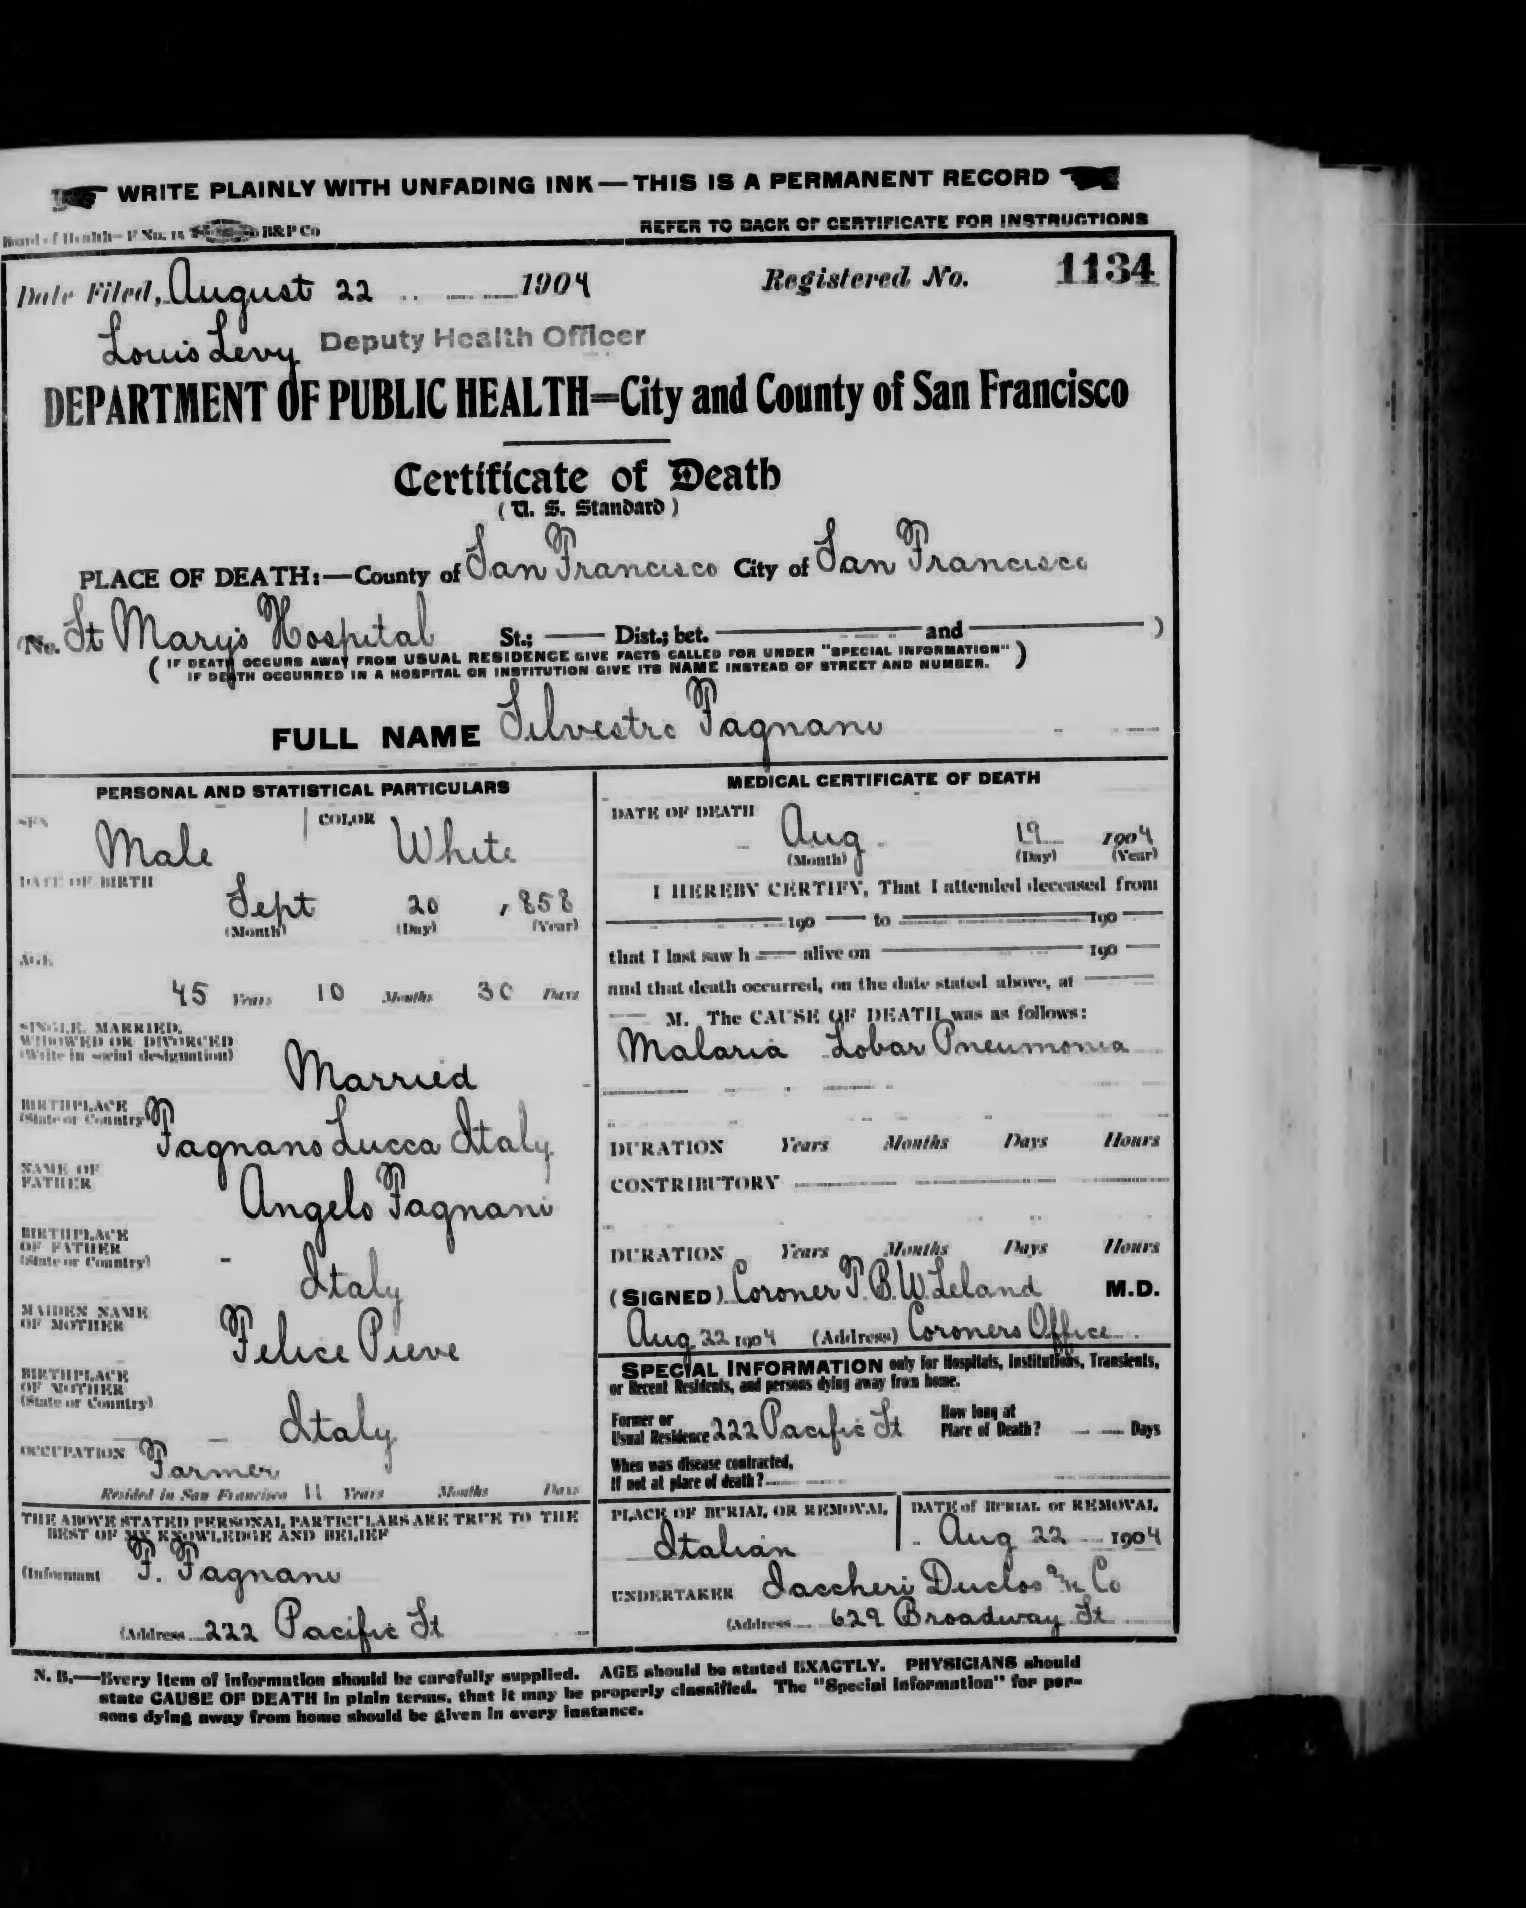 WRITE PLAINLY WITH UNFADING INK—THIS IS A PERMANENT RECORD
Board of Health—F No. 15 B&P Co REFER TO BACK OF CERTIFICATE FOR INSTRUCTIONS
Date Filed, August 22 1904 Registered No. 1134
Louis Levy Deputy Health Officer
DEPARTMENT OF PUBLIC HEALTH=City and County of San Francisco
Certificate of Death
(U. S. Standard)
PLACE OF DEATH:—County of San Francisco City of San Francisco
(No. St Mary's Hospital St.; Dist.; bet. and )
(IF DEATH OCCURS AWAY FROM USUAL RESIDENCE GIVE FACTS CALLED FOR UNDER "SPECIAL INFORMATION"
IF DEATH OCCURRED IN A HOSPITAL OR INSTITUTION GIVE ITS NAME INSTEAD OF STREET AND NUMBER.)
FULL NAME Silvestro Fagnani
PERSONAL AND STATISTICAL PARTICULARS
SEX Male COLOR White
DATE OF BIRTH
Sept 20 1858
(Month) (Day) (Year)
AGE
45 Years 10 Months 30 Days
SINGLE, MARRIED,
WIDOWED OR DIVORCED
(Write in social designation)
Married
BIRTHPLACE
(State or Country)
Fagnano Lucca Italy
NAME OF
FATHER
Angelo Fagnani
BIRTHPLACE
OF FATHER
(State or Country)
Italy
MAIDEN NAME
OF MOTHER
Felice Pieve
BIRTHPLACE
OF MOTHER
(State or Country)
Italy
OCCUPATION Farmer
Resided in San Francisco 11 Years Months Days
THE ABOVE STATED PERSONAL PARTICULARS ARE TRUE TO THE
BEST OF MY KNOWLEDGE AND BELIEF
(Informant F. Fagnani
(Address 222 Pacific St
MEDICAL CERTIFICATE OF DEATH
DATE OF DEATH
Aug 19 1904
(Month) (Day) (Year)
I HEREBY CERTIFY, That I attended deceased from
190 to 190
that I last saw h alive on 190
and that death occurred, on the date stated above, at
M. The CAUSE OF DEATH was as follows:
Malaria Lobar Pneumonia
DURATION Years Months Days Hours
CONTRIBUTORY
DURATION Years Months Days Hours
(SIGNED) Coroner T. B. W. Leland M.D.
Aug 22 1904 (Address) Coroners Office
SPECIAL INFORMATION only for Hospitals, Institutions, Transients,
or Recent Residents, and persons dying away from home.
Former or
Usual Residence 222 Pacific St
How long at
Place of Death? Days
When was disease contracted,
If not at place of death?
PLACE OF BURIAL OR REMOVAL
Italian
DATE of BURIAL or REMOVAL
Aug 22 1904
UNDERTAKER Iaccheri Duclos & Co
(Address 629 Broadway St
N. B.—Every item of information should be carefully supplied. AGE should be stated EXACTLY. PHYSICIANS should
state CAUSE OF DEATH in plain terms, that it may be properly classified. The "Special Information" for per-
sons dying away from home should be given in every instance.